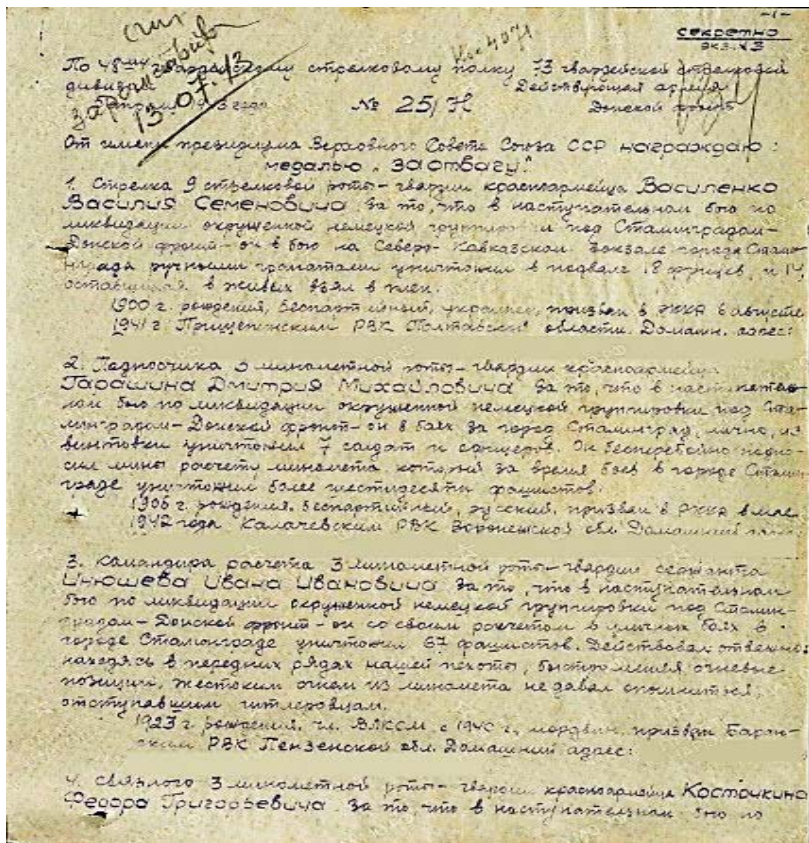 -1-
СЕКРЕТНО
экз. №3
По 48 гвардейскому стрелковому полку 73 гвардейской стрелковой
дивизии Действующая армия
3 года № 25/Н Донской фронт
13.07.43
От имени президиума Верховного Совета Союза ССР НАГРАЖДАЮ:
медалью „ЗА ОТВАГУ".
1. Стрелка 9 стрелковой роты - гвардии красноармейца ВАСИЛЕНКО
ВАСИЛИЯ СЕМЕНОВИЧА за то, что в наступательном бою по
ликвидации окруженной немецкой группировки под Сталинградом-
Донской фронт - он в бою на Северо-Кавказском вокзале города Стали-
нграда ручными гранатами уничтожил в подвале 18 фрицев, и 14,
оставшихся в живых взял в плен.
1900 г. рождения, беспартийный, украинец, призван в РККА в августе
1941 г РВК Полтавской области. Домашн. адрес:
2. Подносчика 3 минометной роты - гвардии красноармейца
ГАРАШИНА ДМИТРИЯ МИХАЙЛОВИЧА за то, что в наступатель-
ном бою по ликвидации окруженной немецкой группировки под Ста-
линградом - Донской фронт - он в боях за город Сталинград, лично, из
винтовки уничтожил 7 солдат и офицеров. Он бесперебойно подно-
сил мины расчету миномета который за время боев в городе Сталин-
граде уничтожил более шестидесяти фашистов.
1906 г. рождения, беспартийный, русский, призван в РККА в мае
1942 года Калачевским РВК Воронежской обл Домашний
3. Командира расчета 3 минометной роты - гвардии сержанта
ИНЮШЕВА ИВАНА ИВАНОВИЧА за то, что в наступательном
бою по ликвидации окруженной немецкой группировки под Сталин-
градом - Донской фронт - он со своим расчетом в уличных боях в
городе Сталинграде уничтожил 67 фашистов. Действовал отважно
находясь в передних рядах нашей пехоты, быстро меняя огневые
позиции, жестоким огнем из миномета не давал опомниться,
отступавшим гитлеровцам.
1923 г. рождения, чл. ВЛКСМ с 1940 г., мордвин, призван
РВК Пензенской обл. Домашний адрес:
4. Связного 3 минометной роты - гвардии красноармейца КОСТОЧКИНА
ФЕДОРА ГРИГОРЬЕВИЧА за то, что в наступательном бою по